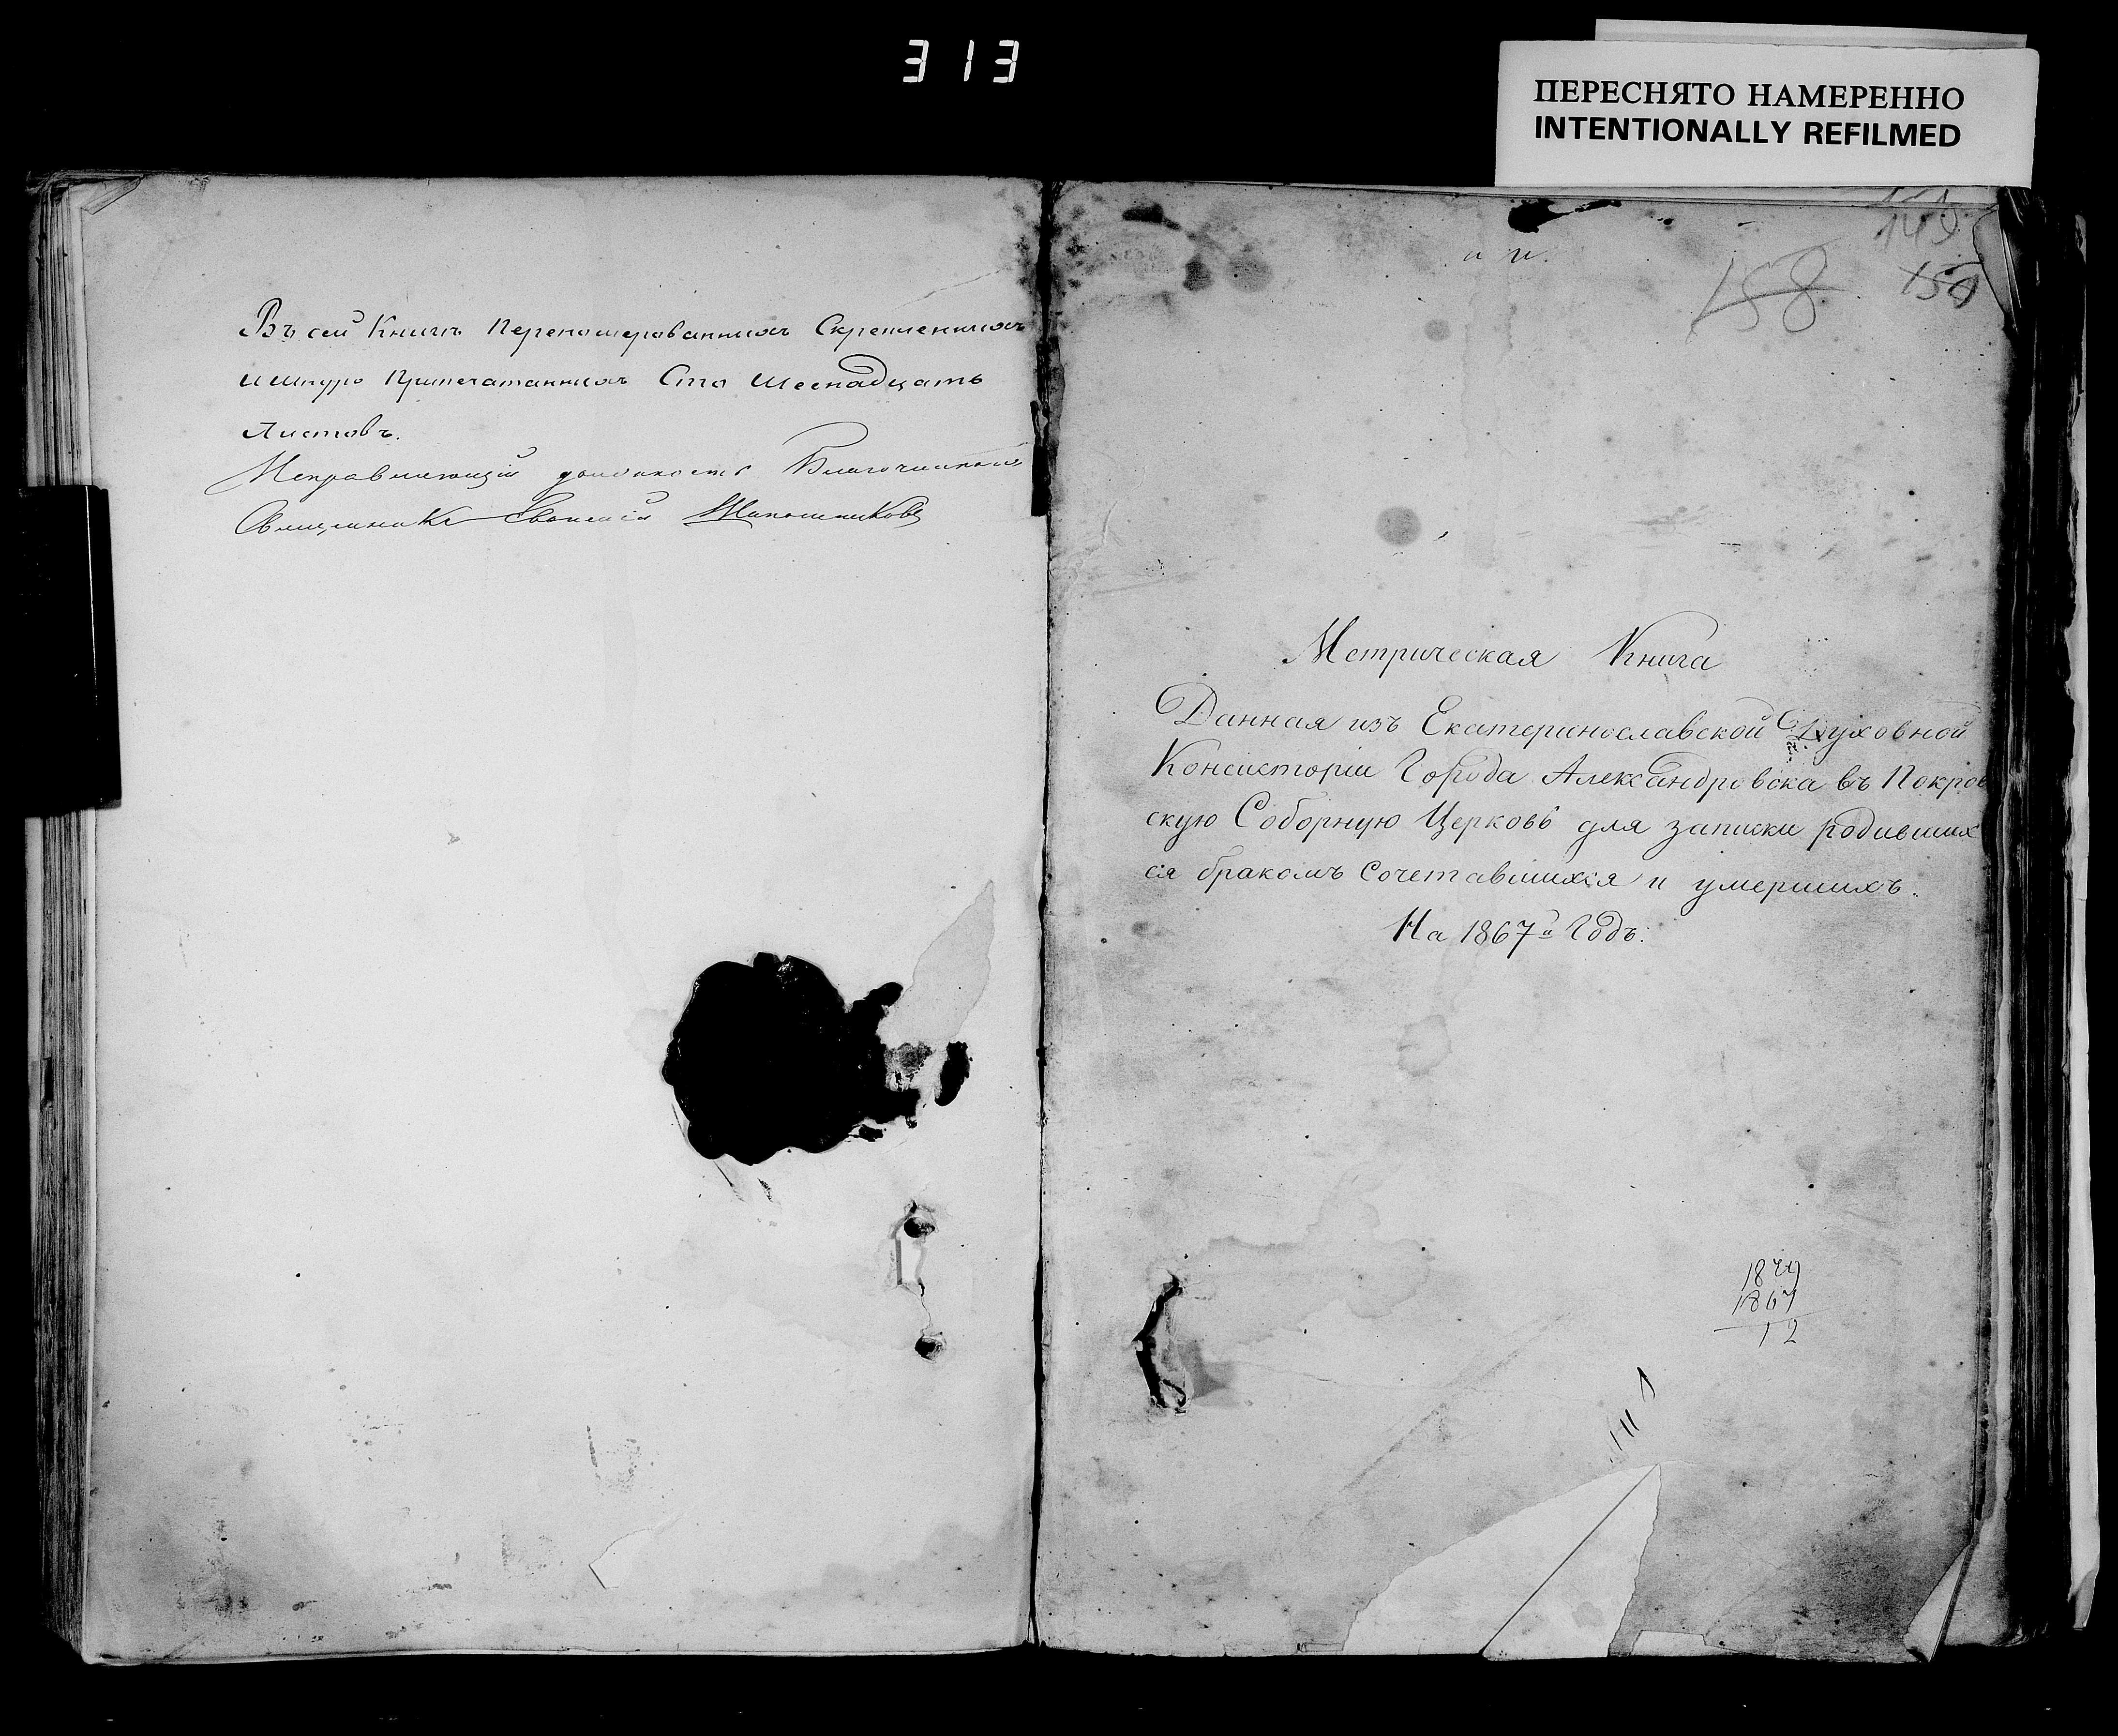 313
ПЕРЕСНЯТО НАМЕРЕННО
INTENTIONALLY REFILMED
Въ сей Книгѣ Перепомерованныхъ Скрепленныхъ
и шнуро Припечатанныхъ Сто шеснадцать
Листовъ.
Исправляющій должность Благочиннаго
Священникъ Шапошниковъ
149
150
158
Метрическая Книга
Данная изъ Екатеринославской Духовной
Консисторіи Города Александровска въ Покров
скую Соборную Церковь для записки родивших
ся бракомъ сочетавшихся и умершихъ.
На 1867й Годъ.
1879
1867
12